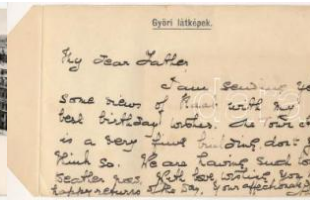 Győri látképek.
My dear Father
I am sending you
some views of with my
best birthday wishes. The Town
is a very fine building don't
think so. We are having such
weather now. With love wishing you
happy returns of the day, your affectionate